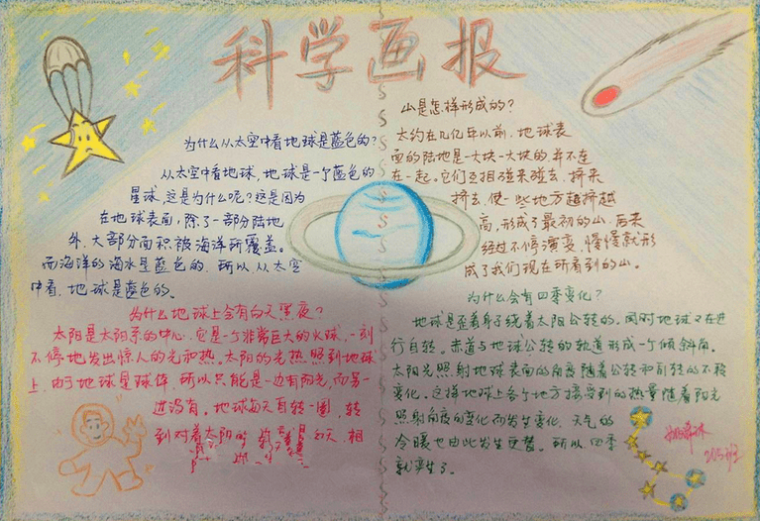 科学画报
为什么从太空中看地球是蓝色的?
从太空中看地球,地球是一个蓝色的
星球,这是为什么呢?这是因为
在地球表面,除了一部分陆地
外,大部分面积被海洋所覆盖。
而海洋的海水是蓝色的,所以,从太空
中看,地球是蓝色的。
为什么地球上会有白天黑夜?
太阳是太阳系的中心,它是一个非常巨大的火球,一刻
不停地发出惊人的光和热。太阳的光热照到地球
上,由于地球是球体,所以只能是一边有阳光,而另一
边没有。地球每天自转一圈,转
到对着太阳的 是白天,相
山是怎样形成的?
大约在几亿年以前,地球表
面的陆地是一大块一大块的,并不连
在一起,它们互相碰来碰去,挤来
挤去,使一些地方越挤越
高,形成了最初的山,后来
经过不停演变,慢慢就形
成了我们现在所看到的山。
为什么会有四季变化?
地球是歪着身子绕着太阳公转的。同时地球又在进
行自转。赤道与地球公转的轨道形成一个倾斜角。
太阳光照射地球表面的角度随着公转和自转的不断
变化。这样地球上各个地方接受到的热量随着阳光
照射角度的变化而发生变化,天气的
冷暖也由此发生更替。所以,四季
就产生了。